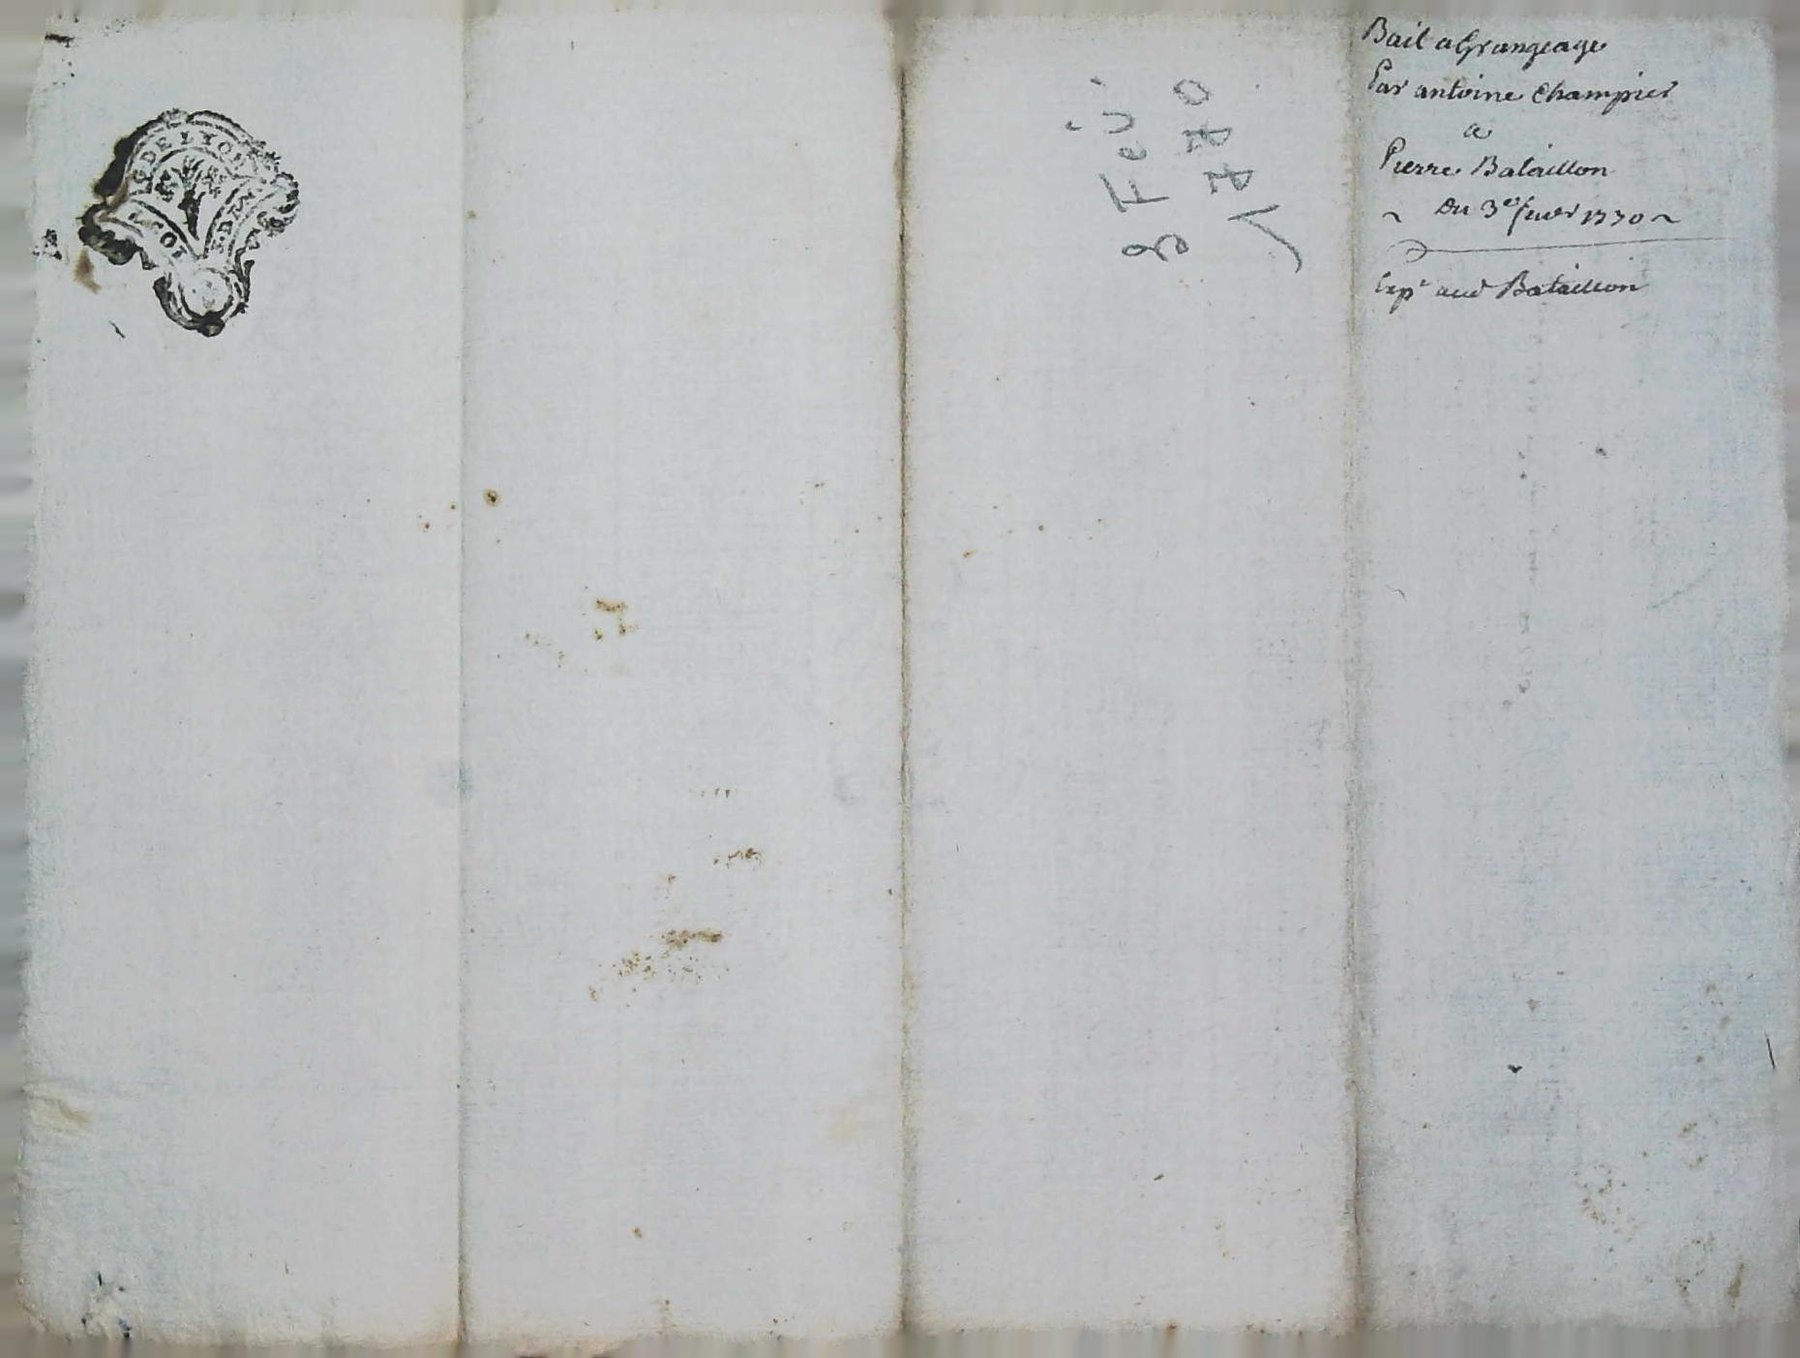 G DE LYON
8 Fevr.
1770
Bail a Grangeage
Par antoine Champier
a
Pierre Bataillon
~ Du 3e fevr 1770 ~
Exp.r aud Bataillon